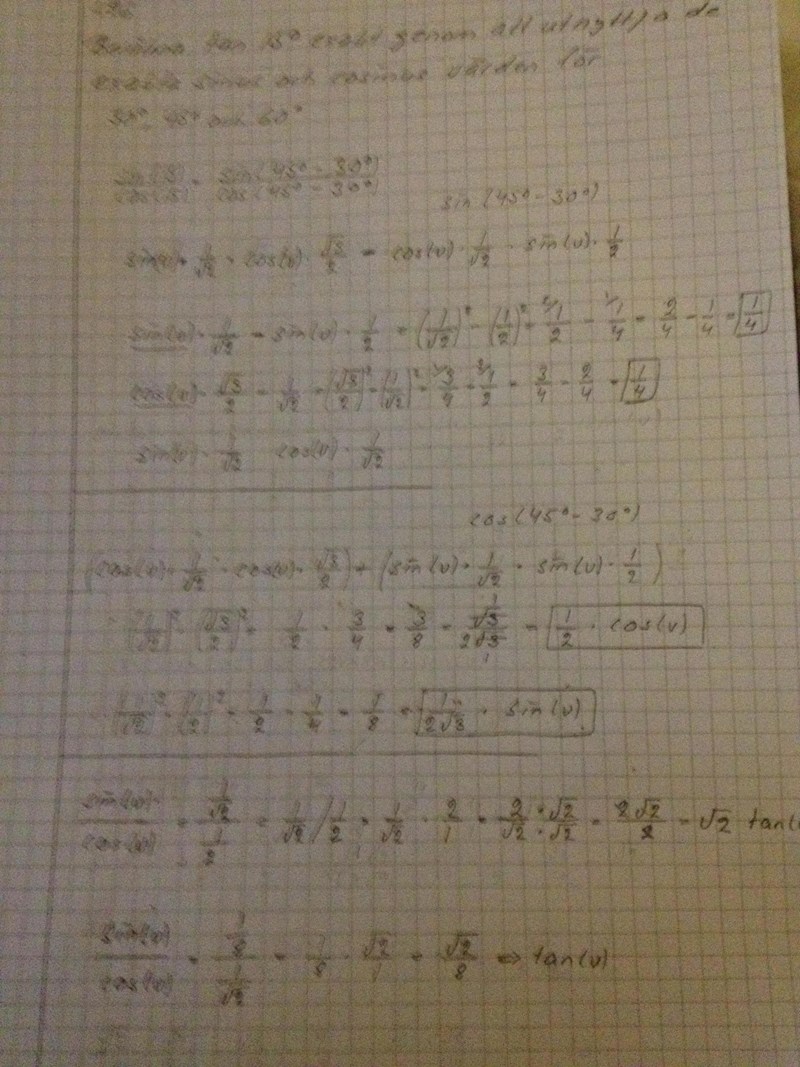 tan 15° exakt genom att utnyttja de
exakta sinus och cosinus värden för
30°, 45° och 60°
sin(15)/cos(15) = sin(45° - 30°)/cos(45° - 30°)
sin(45° - 30°)
sin(v) · 1/√2 · cos(v) · √3/2 - cos(v) · 1/√2 · sin(v) · 1/2
sin(v) · 1/√2 - sin(v) · 1/2 = (1/√2)² - (1/2)² = 1/2 - 1/4 = 2/4 - 1/4 = 1/4
cos(v) · √3/2 - 1/√2 = (√3/2)² - (1/√2)² = 3/4 - 1/2 = 3/4 - 2/4 = 1/4
sin(v) · 1/√2 cos(v) · 1/√2
cos(45° - 30°)
(cos(v) · 1/√2 · cos(v) · √3/2) + (sin(v) · 1/√2 · sin(v) · 1/2)
(1/√2)² · (√3/2)² = 1/2 · 3/4 = 3/8 = √3/2√3 = 1/2 · cos(v)
(1/√2)² · (1/2)² = 1/2 · 1/4 = 1/8 = 1/2√8 · sin(v)
sin(v)/cos(v) = 1/√2 / 1/2 = 1/√2 / 1/2 = 1/√2 · 2/1 = 2 · √2/√2 · √2 = 2√2/2 = √2 tan(
sin(v)/cos(v) = 1/8 / 1/√2 = 1/8 · √2/1 = √2/8 ⇔ tan(v)